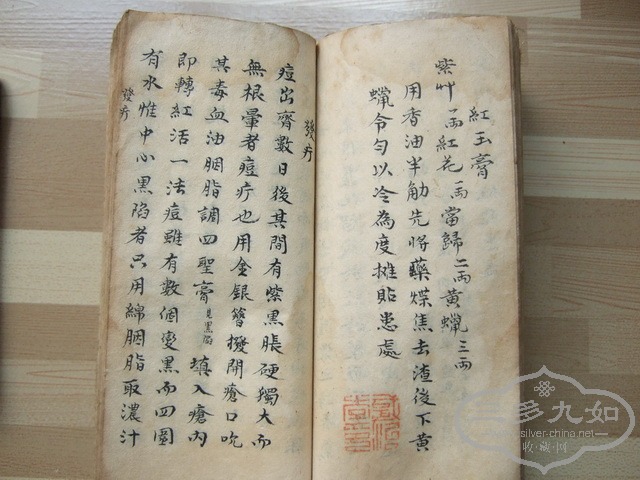 紅玉膏
紫艸一兩紅花一兩當歸二兩黃蠟三兩
用香油半觔先將藥煠焦去渣後下黃
蠟令勻以冷為度攤貼患處
發疔
痘出齊數日後其間有紫黑脹硬獨大而
無根暈者痘疔也用金銀簪撥開瘡口吮
其毒血油胭脂調四聖膏見黑陷填入瘡內
即轉紅活一法痘雖有數個變黑而四圍
有水惟中心黑陷者只用綿胭脂取濃汁
發疔
多九如
silver-china.net
收藏网